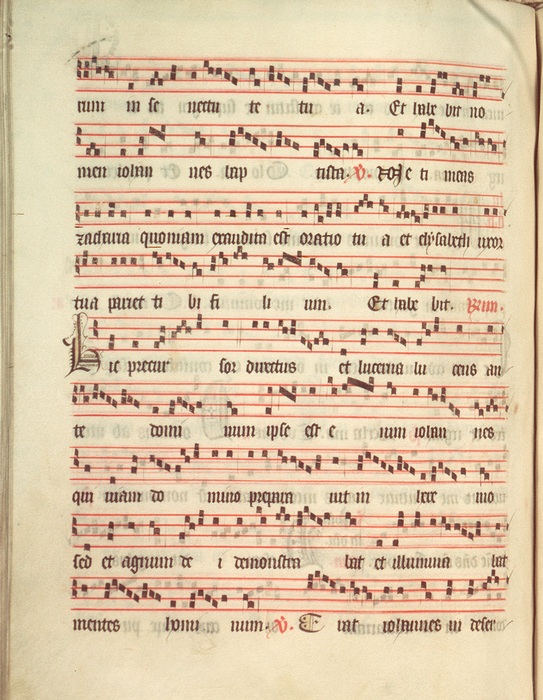 rum in se nectu te tu a. Et habe bit no
men iohan nes bap tista. V. Ne ti meas
zacharia quoniam exaudita est oratio tu a et elysabeth uxor
tua pariet ti bi fi li um. Et habe bit.
Hic precur sor directus et lucerna lu cens an
te domi num ipse est e nim iohan nes
qui uiam do mino prepara uit in
sed et agnum de i demonstra bat et illumina bat
mentes homi num. V. E rat iohannes in deser